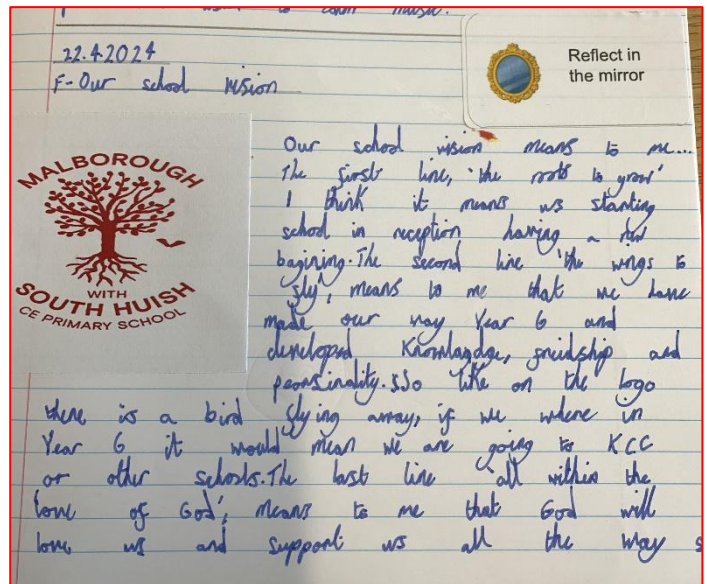 to learn music.
22.4.2024
F-Our school vision
Reflect in
the mirror
MALBOROUGH
WITH
SOUTH HUISH
CE PRIMARY SCHOOL
Our school vision means to me...
The first line, 'the roots to grow'
I think it means us starting
school in reception having a
bagining. The second line 'the wings to
fly', means to me that we have
made our way Year 6 and
developed Knowlagdge, freidship and
peorsinality. So like on the logo
there is a bird flying away, if we where in
Year 6 it would mean we are going to KCC
or other schools. The last line 'all within the
love of God', means to me that God will
love us and support us all the way